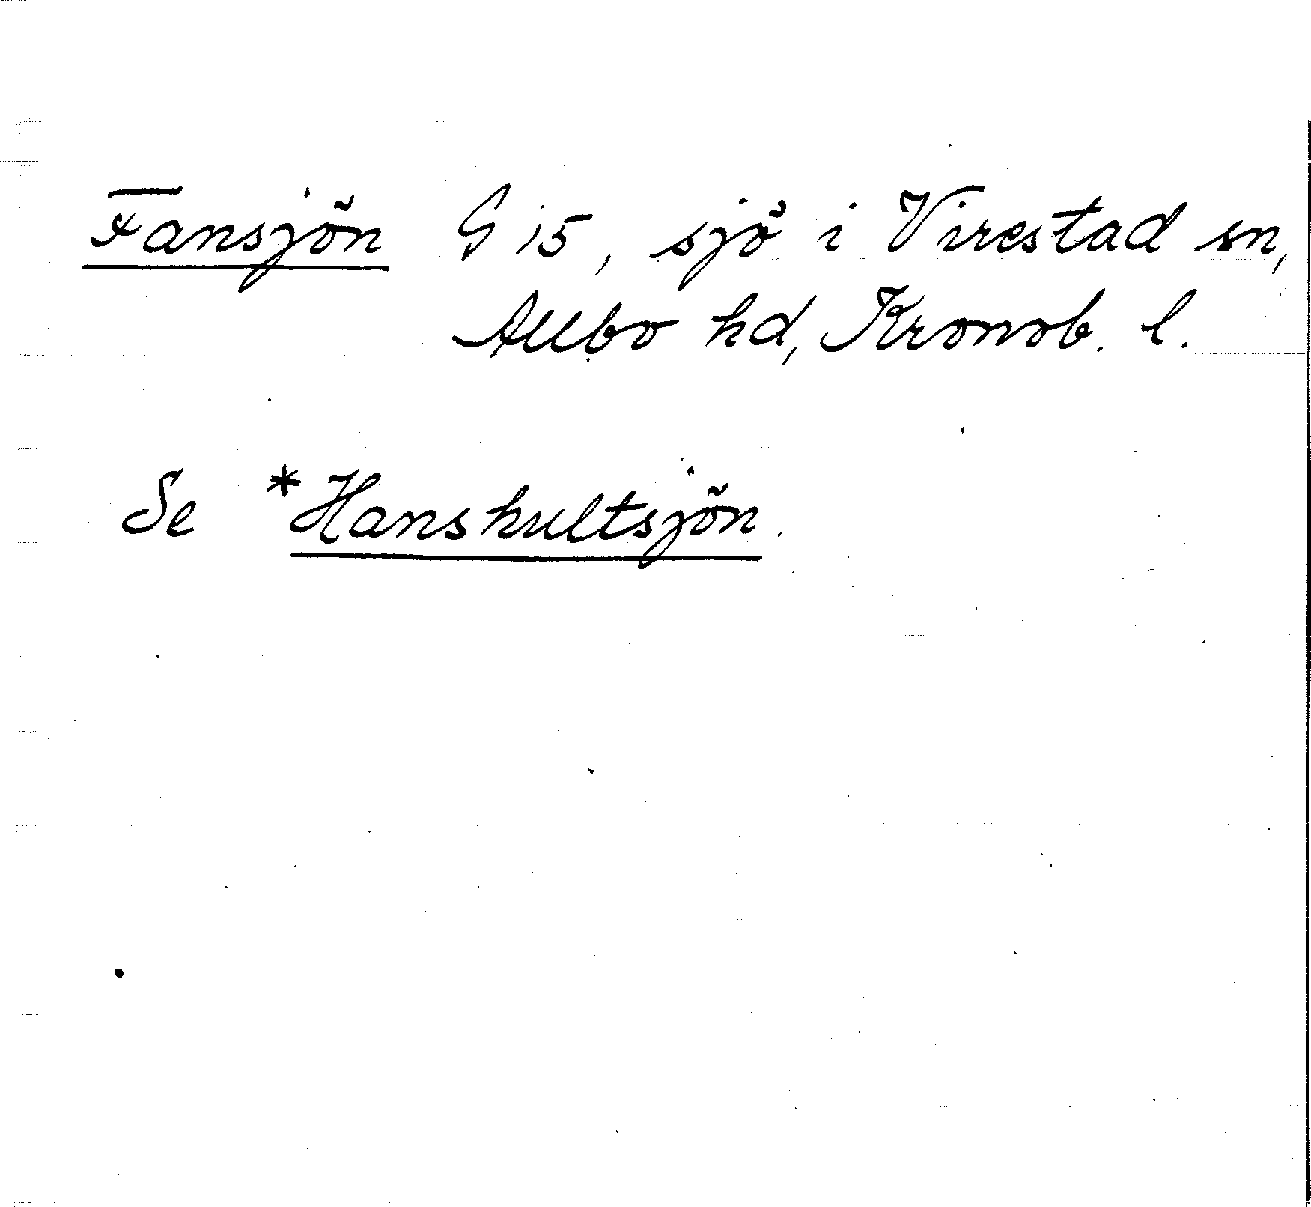 Fansjön G 15, sjö i Virestad sn,
Allbo hd, Kronob. l.
Se *Hanshultsjön.